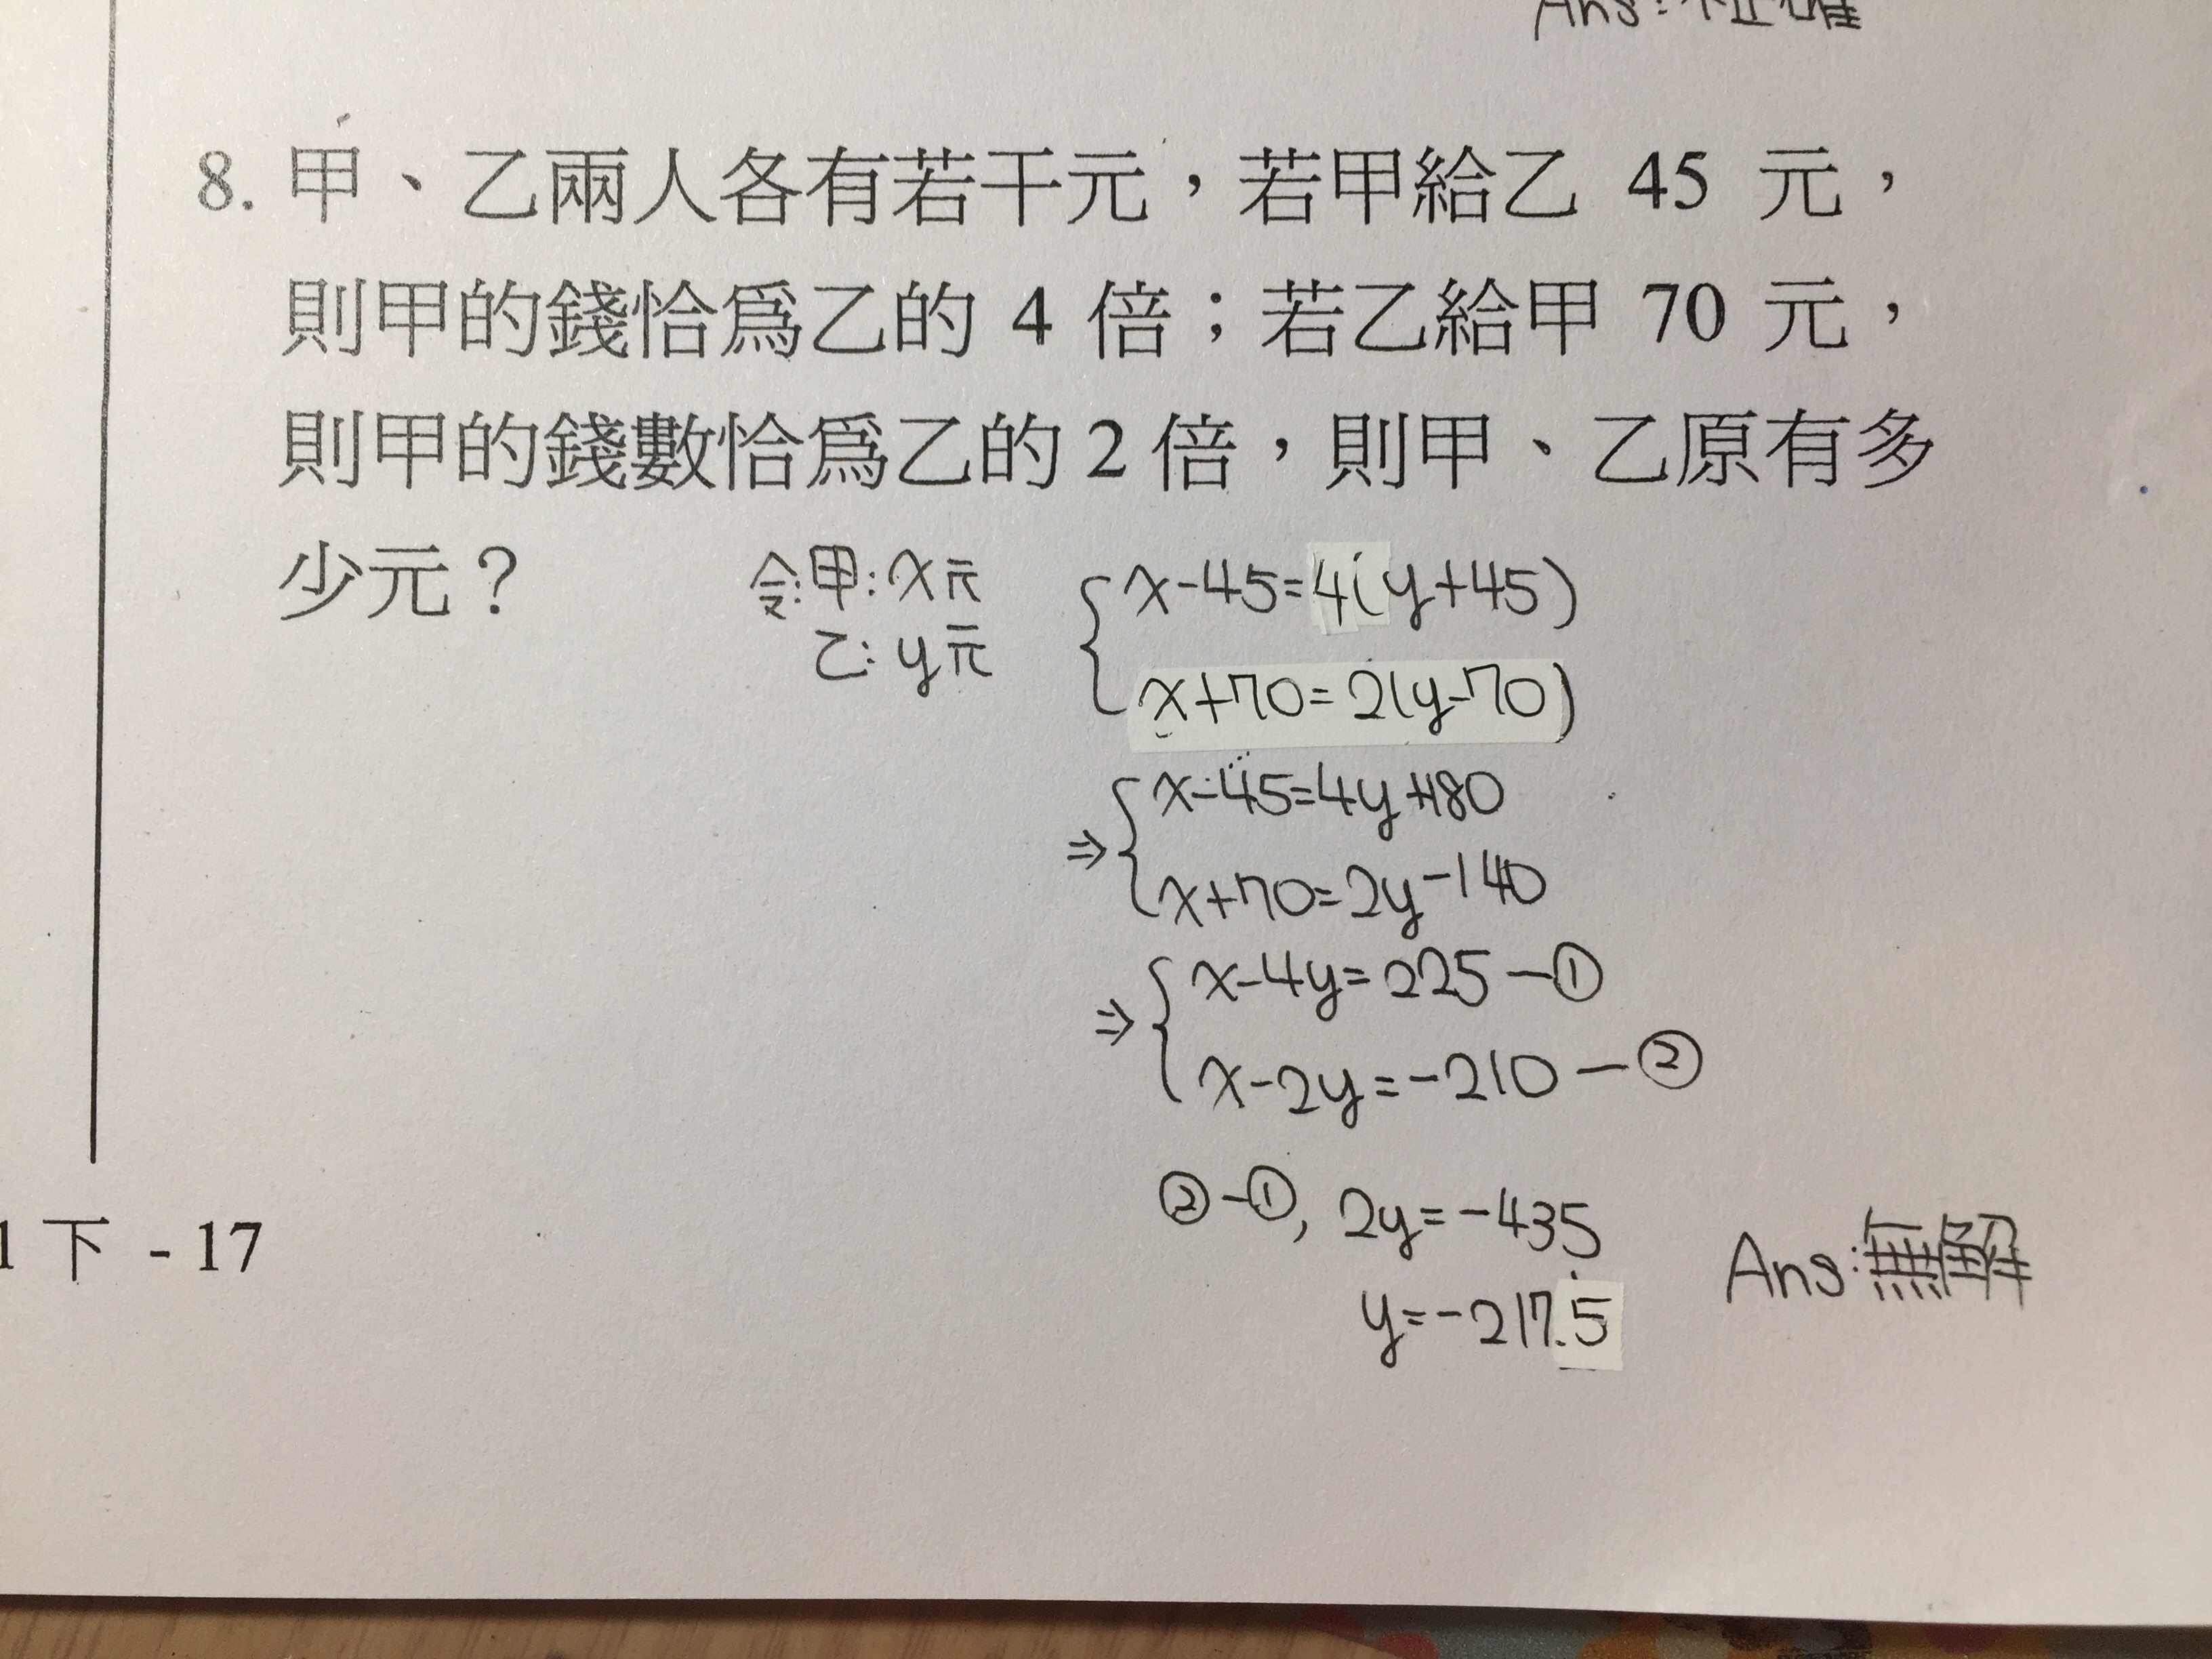 Ans:
8. 甲、乙兩人各有若干元，若甲給乙 45 元，
則甲的錢恰爲乙的 4 倍；若乙給甲 70 元，
則甲的錢數恰爲乙的 2 倍，則甲、乙原有多
少元？
令:甲:x元
乙:y元
x-45=4(y+45)
x+70=2(y-70)
⇒ x-45=4y+180
x+70=2y-140
⇒ x-4y=225-①
x-2y=-210-②
②-①, 2y=-435
y=-217.5
Ans:無解
1下 - 17